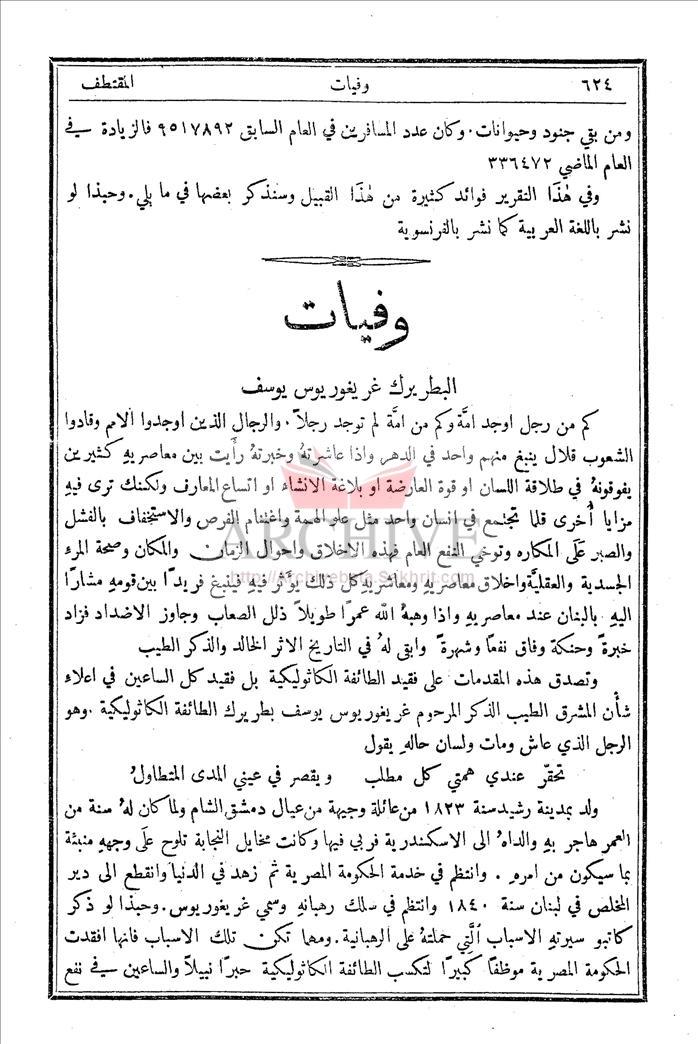 ٦٢٤ وفيات المقتطف
ومن بقي جنود وحيوانات. وكان عدد المسافرين في العام السابق ٩٥١٧٨٩٢ فالزيادة في
العام الماضي ٣٣٦٤٧٢
وفي هٰذَا التقرير فوائد كثيرة من هٰذَا القبيل وسنذكر بعضها في ما يلي. وحبذا لو
نشر باللغة العربية كما نشر بالفرنسوية
وفيات
البطريرك غريغوريوس يوسف
كم من رجل اوجد امَّة وكم من امَّة لم توجد رجلاً. والرجال الذين اوجدوا الامم وقادوا
الشعوب قلال ينبغ منهم واحد في الدهر واذا عاشرتهُ وخبرتهُ رأَيت بين معاصريهِ كثيرين
يفوقونهُ في طلاقة اللسان او قوة العارضة او بلاغة الانشاء او اتساع المعارف ولكنك ترى فيهِ
مزايا أُخرى قلما تجتمع في انسان واحد مثل علو الهمة واغتنام الفرص والاستخفاف بالفشل
والصبر عَلَى المكاره وتوخي النفع العام فهذه الاخلاق واحوال الزمان والمكان وصحة المرء
الجسدية والعقليَّة واخلاق معاصريهِ ومعاشريهِ كل ذلك يؤَثر فيهِ فينبغ فريدًا بين قومهِ مشارًا
اليهِ بالبنان عند معاصريهِ واذا وهبهُ الله عمرًا طويلاً ذلل الصعاب وجاوز الاضداد فزاد
خبرةً وحنكة وفاق نفعًا وشهرةً وابقى لهُ في التاريخ الاثر الخالد والذكر الطيب
وتصدق هذه المقدمات على فقيد الطائفة الكاثوليكية بل فقيد كل الساعين في اعلاء
شأن المشرق الطيب الذكر المرحوم غريغوريوس يوسف بطريرك الطائفة الكاثوليكية. وهو
الرجل الذي عاش ومات ولسان حالهِ يقول
تحقّر عندي همتي كل مطلب ويقصر في عيني المدى المتطاولُ
ولد بمدينة رشيد سنة ١٨٢٣ من عائلة وجيهة من عيال دمشق الشام ولما كان لهُ سنة من
العمر هاجر بهِ والداهُ الى الاسكندرية فربي فيها وكانت مخايل النجابة تلوح عَلَى وجههِ منبئة
بما سيكون من امرهِ. وانتظم في خدمة الحكومة المصرية ثم زهد في الدنيا وانقطع الى دير
المخلص في لبنان سنة ١٨٤٠ وانتظم في سلك رهبانهِ وسمي غريغوريوس. وحبذا لو ذكر
كاتبو سيرتهِ الاسباب الَّتِي حملتهُ عَلَى الرهبانية. ومهما تكن تلك الاسباب فانها افقدت
الحكومة المصرية موظفًا كبيرًا لتكسب الطائفة الكاثوليكية حبرًا نبيلاً والساعين في نفع
ARCHIVE
http://Archivebeta.Sakhrit.com